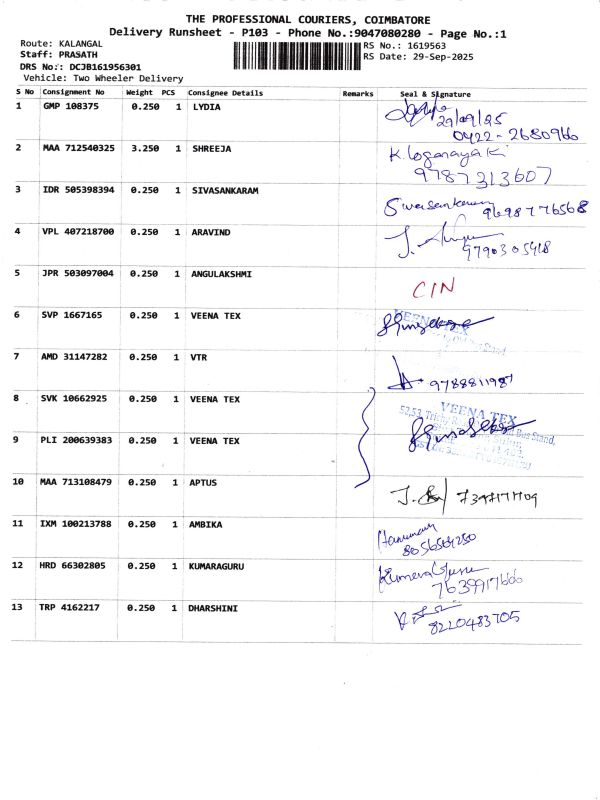 THE PROFESSIONAL COURIERS, COIMBATORE
Delivery Runsheet - P103 - Phone No.:9047080280 - Page No.:1
Route: KALANGAL
RS No.: 1619563
Staff: PRASATH
RS Date: 29-Sep-2025
DRS No.: DCJB161956301
Vehicle: Two Wheeler Delivery
S No Consignment No Weight PCS Consignee Details Remarks Seal & Signature
1 GMP 108375 0.250 1 LYDIA
29/09/25
0422-2680966
2 MAA 712540325 3.250 1 SHREEJA K. Loganayaki
9787313607
3 IDR 505398394 0.250 1 SIVASANKARAM
Sivasankaram 9698776568
4 VPL 407218700 0.250 1 ARAVIND
9790305418
5 JPR 503097004 0.250 1 ANGULAKSHMI
CIN
6 SVP 1667165 0.250 1 VEENA TEX VEENA TEX
Old Bus Stand,
7 AMD 31147282 0.250 1 VTR
9788811987
8 SVK 10662925 0.250 1 VEENA TEX VEENA TEX
52,53, Trichy Bus Stand,
9 PLI 200639383 0.250 1 VEENA TEX
10 MAA 713108479 0.250 1 APTUS
11 IXM 100213788 0.250 1 AMBIKA
8056504250
12 HRD 66302805 0.250 1 KUMARAGURU Kumaraguru
7639917666
13 TRP 4162217 0.250 1 DHARSHINI
8220483705